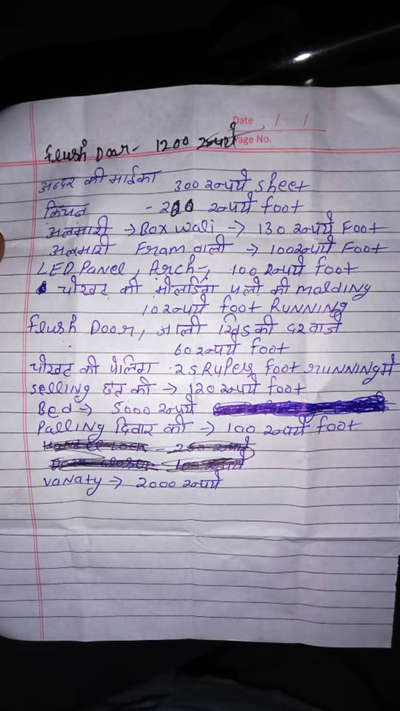 Date / /
Page No.
Flush Door - 1200 रूपये
अन्दर की माईका 300 रूपये sheet
किचन - 210 रूपये foot
अलमारी → Box wali → 130 रूपये Foot
अलमारी Fram वाली → 100 रूपये Foot
LED Panel, Arch -, 100 रूपये foot
चौखट की मोलडिंग पलो की malding
10 रूपये foot RUNNING
Flush Door, जाली खिड़की दरवाजे
60 रूपये foot
चौखट की पेलिंग 25 Rupess Foot running में
selling छत की → 120 रूपये foot
Bed → 5000 रूपये
Palling दिवार की → 100 रूपये foot
vanaty → 2000 रूपये